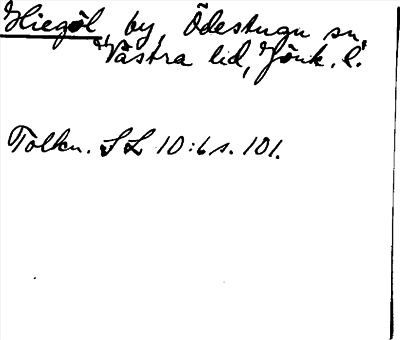 Hiegöl, by, Ödestugu sn,
Västra hd, Jönk. l.
Tolkn. SL 10:6 s. 101.